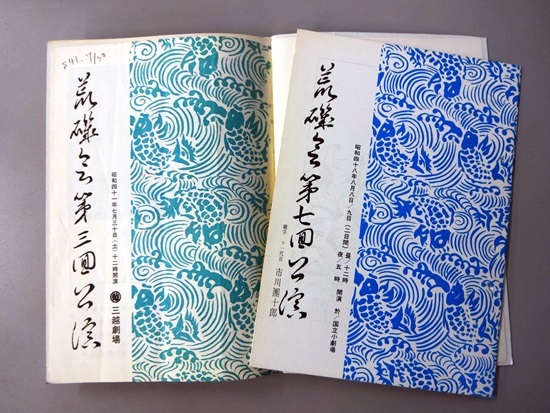 S41.7/30
荒磯会第三回公演
昭和四十一年七月三十日（土）十二時開演
越 三越劇場
荒磯会第七回公演
昭和四十八年八月八日、九日（二日間）昼／十二時 夜／五時 開演 於／国立小劇場
題字・十一代目 市川團十郎